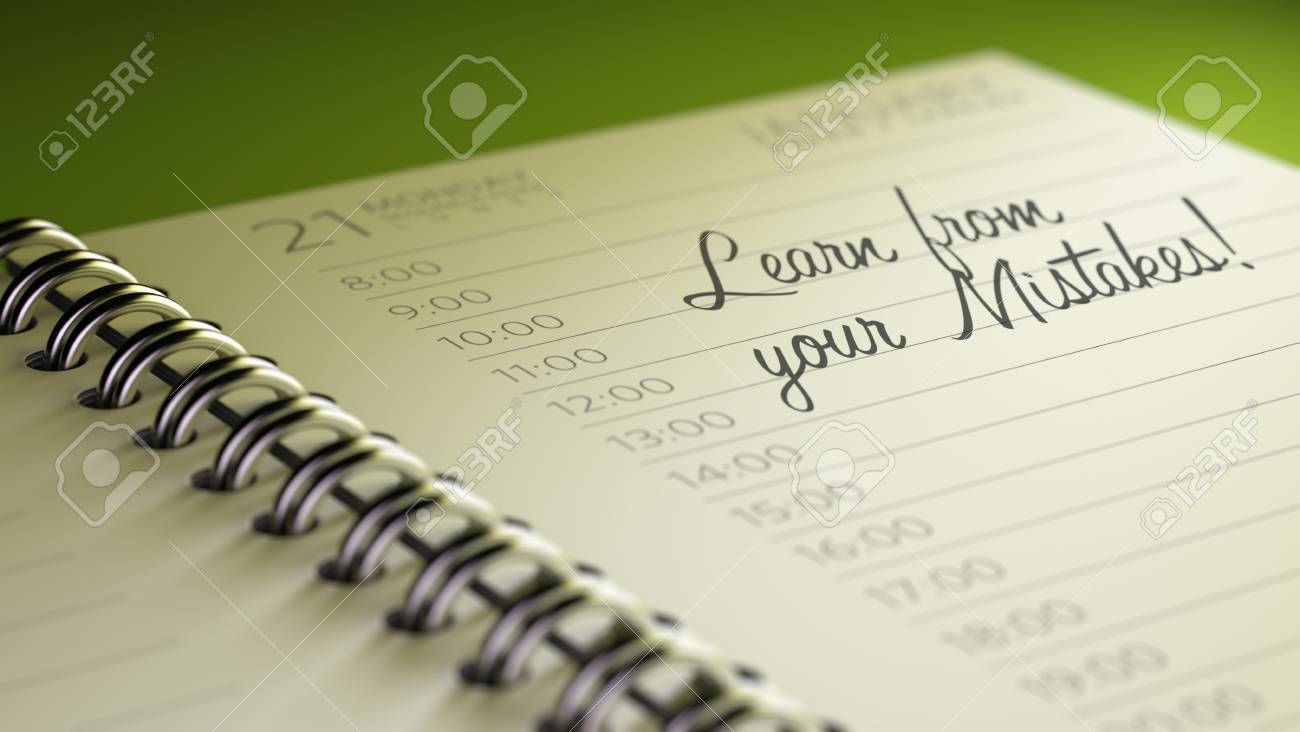 21 MONDAY
8:00
9:00
10:00
11:00
12:00
13:00
14:00
15:00
16:00
17:00
18:00
19:00
Learn from
your Mistakes!
123RF
123RF
123RF
123RF
123RF